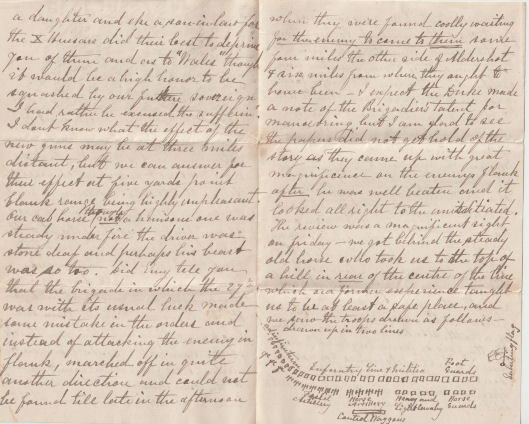 a daughter and she a son in law for
the X Hussars did their best to deprive
you of them and as to "Wales" though
it would be a high honor to be
squashed by our future sovereign
I had rather be excused the suffering.
I dont know what the effect of the
new guns may be at three miles
distant, but we can answer for
their effect at five yards point
blank range being highly unpleasant.
Our cab horse though not a handsome one was
steady under fire the driver was
stone deaf and perhaps his beast
was so too. - did my tell you
that the brigade in which the 27th
was with its usual luck made
some mistake in the orders and
instead of attacking the enemy in
flank, marched off in quite
another direction and could not
be found till late in the afternoon
when they were found coolly waiting
for the enemy to come to them some
four miles the other side of Aldershot
& six miles from where they ought to
have been - I expect the Duke made
a note of the Brigadiers talent for
manœuvring but I am glad to see
the papers did not get hold of the
story as they came up with great
magnificence on the enemys flank
after he was well beaten and it
looked all right to the uninitiated.
The review was a magnificent sight
on Friday - we got behind the steady
old horse who took us to the top of
a hill in rear of the centre of the line
which as a former experience taught
us to be at least a safe place, and
we saw the troops drawn as follows -
drawn up in two lines
Infantry Line & Militia
Foot
Guards
Field
Artillery
Horse
Artillery
Heavy and
Light Cavalry
Horse
Guards
Control Waggons
Saluting flag